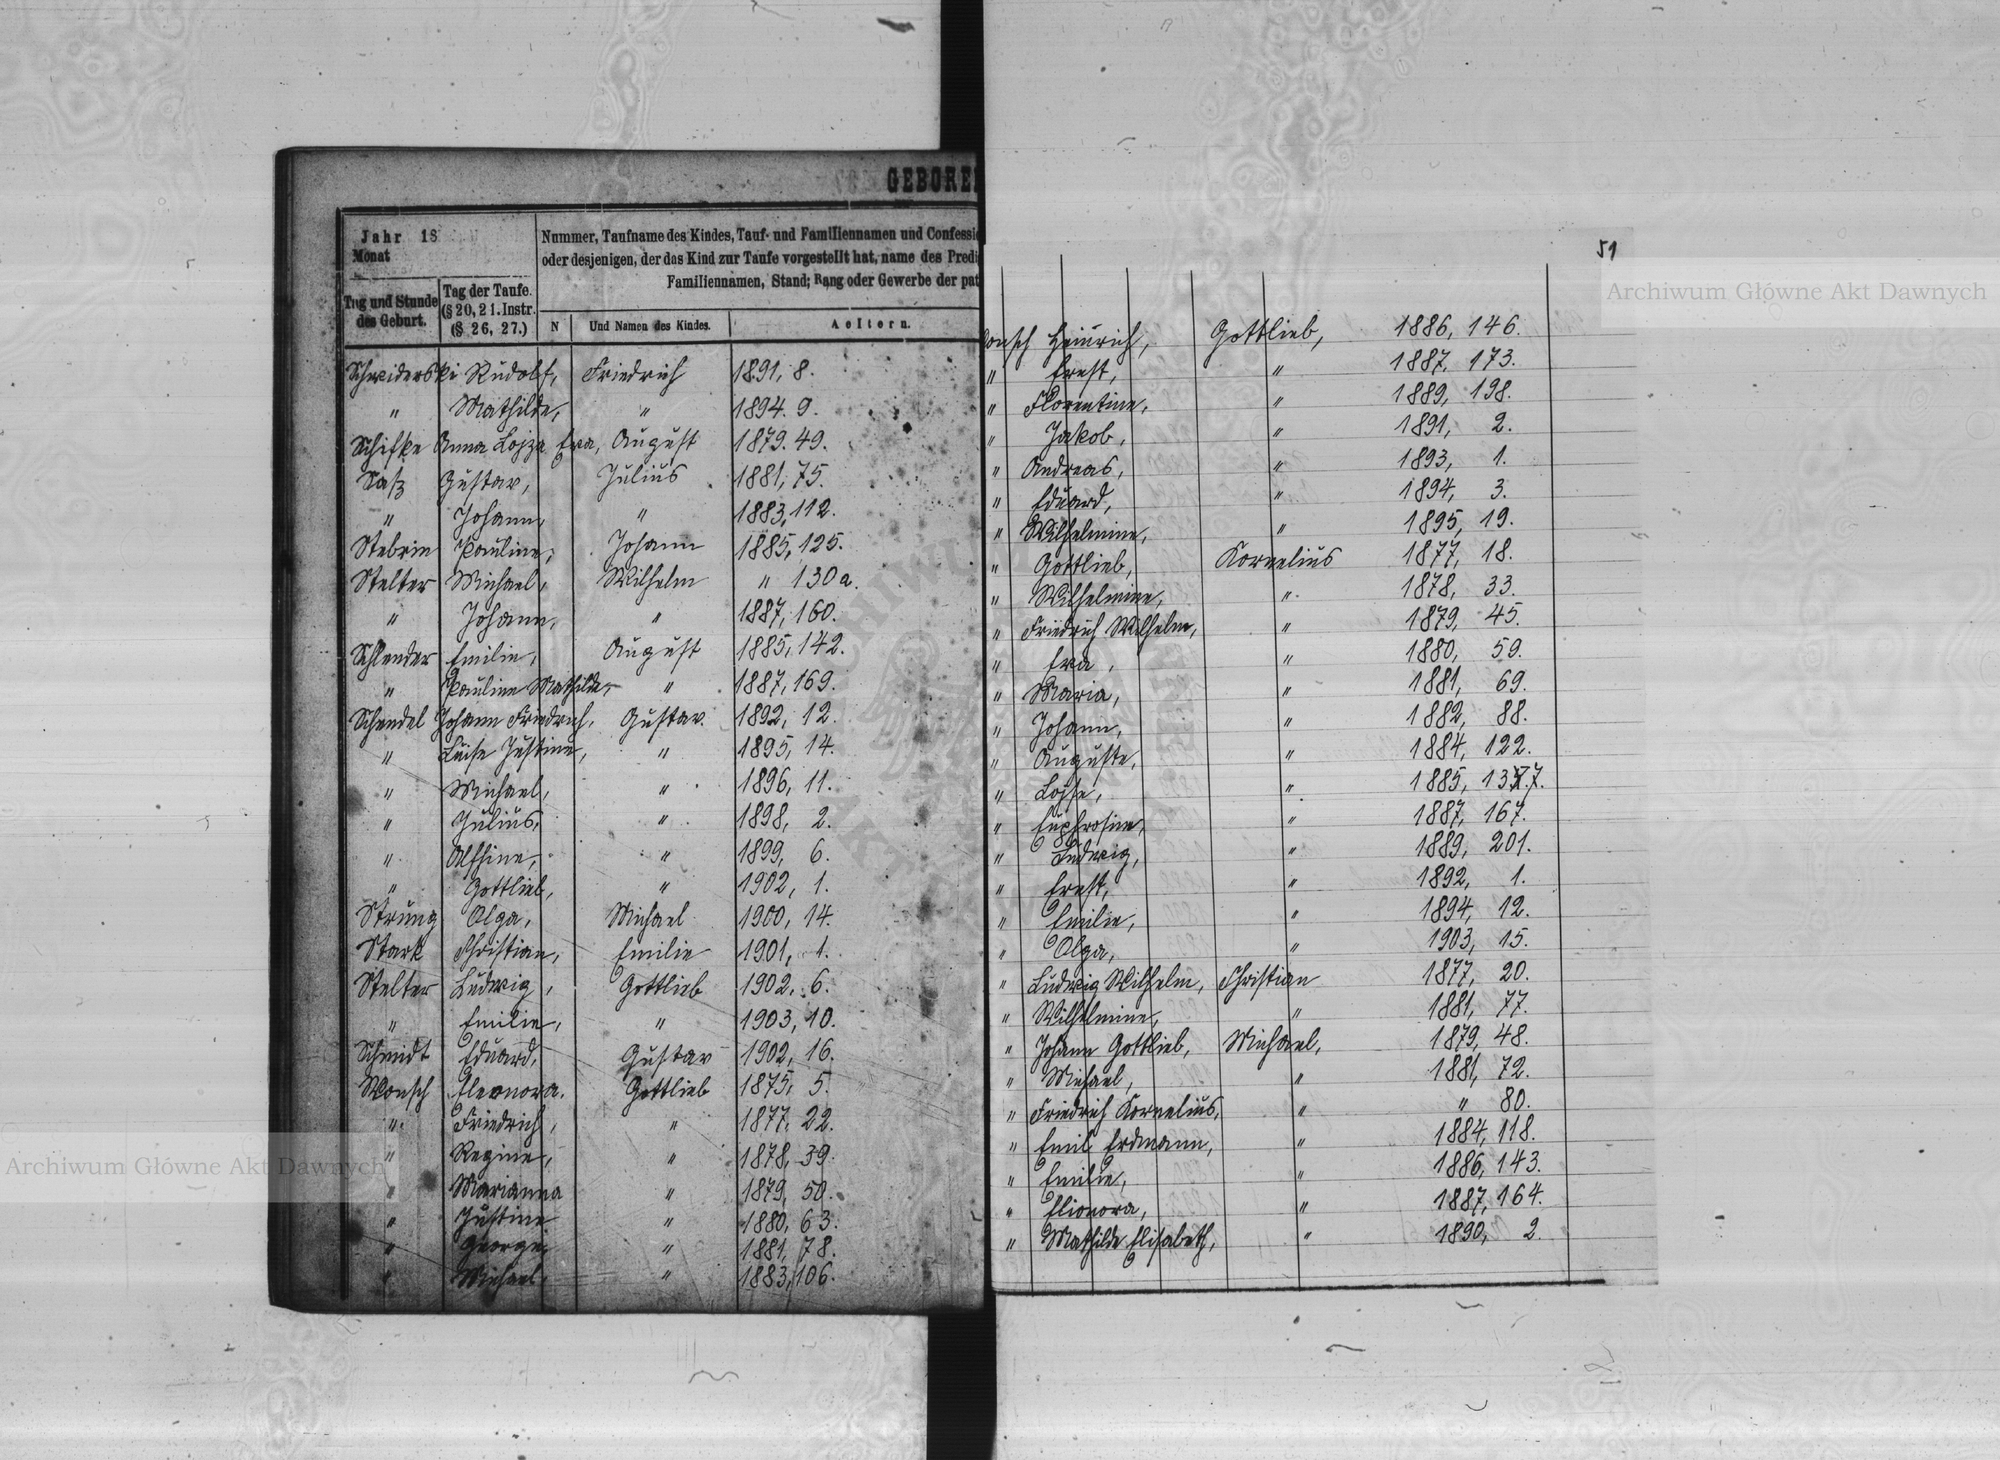 GEBOREN
Jahr 18
Monat
Tag und Stunde des Geburt.
Tag der Taufe. (§ 20, 21. Instr. (§ 26, 27.)
Nummer, Taufname des Kindes, Tauf- und Familiennamen und Confessi
oder desjenigen, der das Kind zur Taufe vorgestellt hat, name des Predi
Familiennamen, Stand; Rang oder Gewerbe der pat
N Und Namen des Kindes. Aeltern.
Schwiderski Rudolf, Friedrich 1891, 8.
" Mathilde, " 1894. 9.
Schifke Anna Lojza Eva, August 1879. 49.
Saß Gustav, Julius 1881, 75.
" Johann, " 1883, 112.
Stebrin Pauline, Johann 1885, 125.
Stelter Michael, Wilhelm " 130a.
" Johann, " 1887, 160.
Schlender Emilie, August 1885, 142.
" Pauline Mathilde, " 1887, 169.
Schendel Johann Friedrich, Gustav. 1892, 12.
" Luise Justine, " 1895, 14.
" Michael, " 1896, 11.
" Julius, " 1898, 2.
" Alfine, " 1899, 6.
" Gottlieb, " 1902, 1.
Strung Olga, Michael 1900, 14.
Stark Christian, Emilie 1901, 1.
Stelter Ludwig, Gottlieb 1902, 6.
" Emilie, " 1903, 10.
Schmidt Eduard, Gustav 1902, 16.
Wonsch Eleonora. Gottlieb 1875, 5.
" Friedrich, " 1877, 22.
" Regine, " 1878, 39.
" Marianna " 1879, 50.
" Justine " 1880, 63.
" George, " 1881, 78.
" Michael, " 1883, 106.
51
onsch Heinrich, Gottlieb, 1886, 146.
" Ernst, " 1887, 173.
" Florentine, " 1889, 198.
" Jakob, " 1891, 2.
" Andreas, " 1893, 1.
" Eduard, " 1894, 3.
" Wilhelmine, " 1895, 19.
" Gottlieb, Kornelius 1877, 18.
" Wilhelmine, " 1878, 33.
" Friedrich Wilhelm, " 1879, 45.
" Eva, " 1880, 59.
" Maria, " 1881, 69.
" Johann, " 1882, 88.
" Auguste, " 1884, 122.
" Lojse, " 1885, 137.
" Euphrosine, " 1887, 167.
" Ludwig, " 1889, 201.
" Ernst, " 1892, 1.
" Emilie, " 1894, 12.
" Olga, " 1903, 15.
" Ludwig Wilhelm, Christian 1877, 20.
" Wilhelmine, " 1881, 77.
" Johann Gottlieb, Michael, 1879, 48.
" Michael, " 1881, 72.
" Friedrich Kornelius, " " 80.
" Emil Erdmann, " 1884, 118.
" Emilie, " 1886, 143.
" Elionora, " 1887, 164.
" Mathilde Elisabeth, " 1890, 2.
Archiwum Główne Akt Dawnych
Archiwum Główne Akt Dawnych